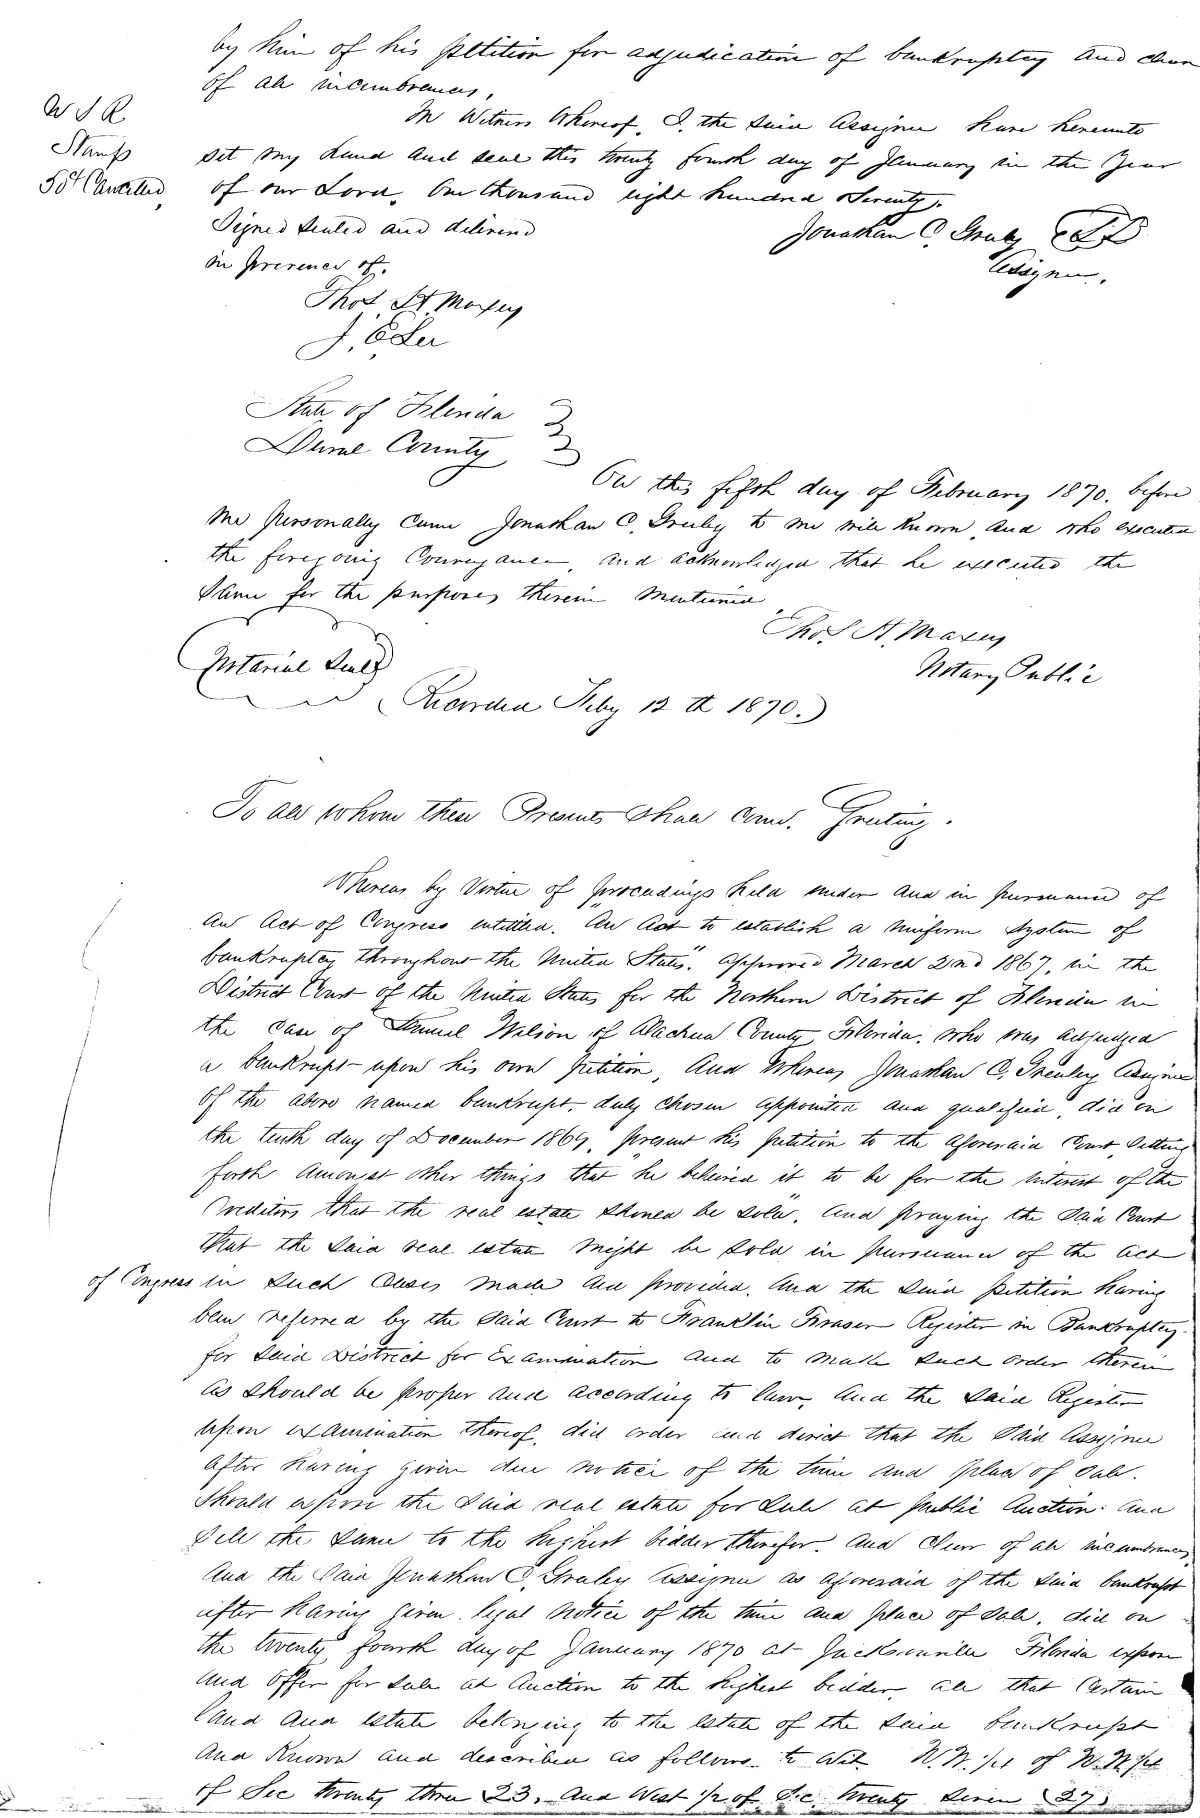 by him of his petition for adjudication of bankruptcy and clear
of all incumbrances,
In Witness Whereof, I, the said Assignee have hereunto
W S R
Stamp
50¢ Cancelled,
set my hand and seal this twenty fourth day of January in the Year
of our Lord, One thousand eight hundred Seventy.
Signed Sealed and delivered
in presence of.
Jonathan C, Greeley
Assignee.
Thos. H. Maxey
J. E. Lee
State of Florida
Duval County
On this fifth day of February 1870, before
me personally came Jonathan C, Greeley to me well known, and who executed
the foregoing Conveyance, and acknowledged that he executed the
Same for the purposes therein mentioned,
Thos. H. Maxey
Notary Public
Notarial Seal
(Recorded Feby 12th 1870.)
To all whom these Presents shall come. Greeting.
Whereas by Virtue of proceedings held under and in pursuance of
an Act of Congress entitled. "An Act to establish a uniform System of
bankruptcy throughout the United States". approved March 2nd 1867, in the
District Court of the United States for the Northern District of Florida in
the case of Samuel Wilson of Alachua County, Florida. who was adjudged
a bankrupt upon his own petition, And Whereas Jonathan C, Greeley Assignee
of the above named bankrupt, duly chosen appointed and qualified, did on
the tenth day of December 1869, present his petition to the aforesaid Court, Setting
forth amongst other things that he believed it to be for the interest of the
Creditors that the real estate should be sold, and praying the said Court
that the said real estate might be sold in pursuance of the Act
of Congress in such cases made and provided. And the said petition having
been referred by the said Court to Franklin Fraser Register in Bankruptcy
for said District for Examination and to make such order therein
as should be proper and according to law, And the said Register
upon examination thereof, did order and direct that the said Assignee
after having given due notice of the time and place of sale.
should expose the said real estate for sale at public Auction. and
Sell the same to the highest bidder therefor. And Clear of all incumbrances,
And the said Jonathan C, Greeley Assignee as aforesaid of the said bankrupt
after having given legal notice of the time and place of sale. did on
the twenty fourth day of January 1870 at Jacksonville Florida expose
and offer for sale at Auction to the highest bidder, all that Certain
land and estate belonging to the estate of the said bankrupt
and Known and described as follows to Wit. N.W. 1/4 of N.W. 1/4
of Sec twenty three 23, and West 1/2 of Sec. twenty seven (27)